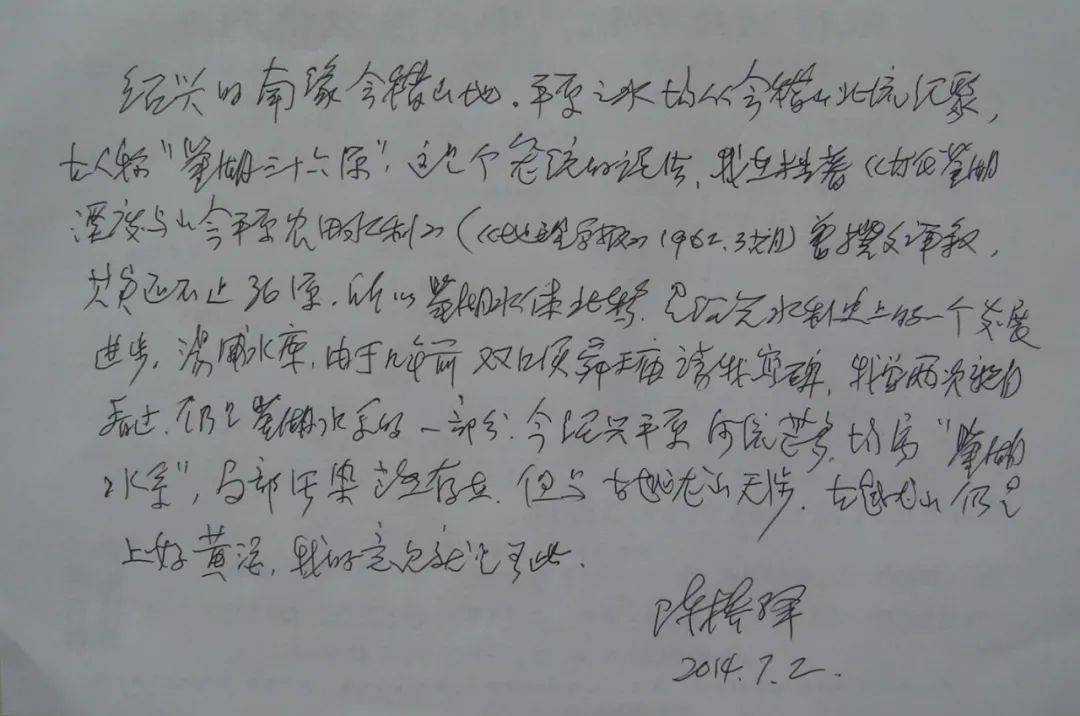 绍兴的南缘会稽山地，平原之水均从会稽山北流汇聚，
古人称“鉴湖三十六源”，这是个笼统的说法，我在拙著《古代鉴湖
湮废与山会平原农田水利》（《地理学报》1962.3期）曾撰文详叙，
其实还不止36源，所以鉴湖水体北移，是绍兴水利史上的一个发展
进步，汤浦水库，由于几年前双江溪舜王庙请我写碑，我曾两次亲自
看过，仍是鉴湖水系的一部分，今绍兴平原河流甚多，均属“鉴湖
水系”，局部污染当然存在，但与古越龙山无涉，古越龙山仍是
上好黄酒，我的意见就是如此。
陈桥驿
2014.7.2.